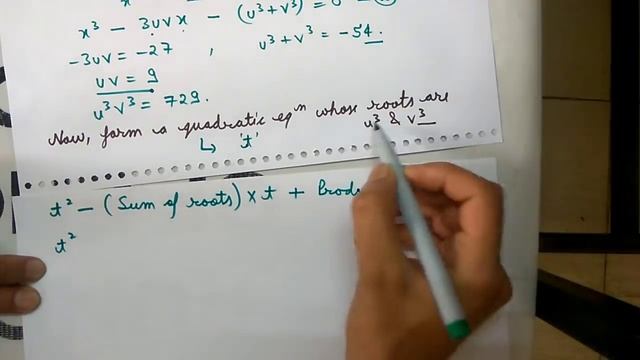 x³ - 3uvx - (u³+v³) = 0
-3uv = -27 , u³+v³ = -54.
uv = 9
u³v³ = 729.
Now, form a quadratic eqⁿ whose roots are
u³ & v³
↳ 't'
t² - (Sum of roots) × t +
t²